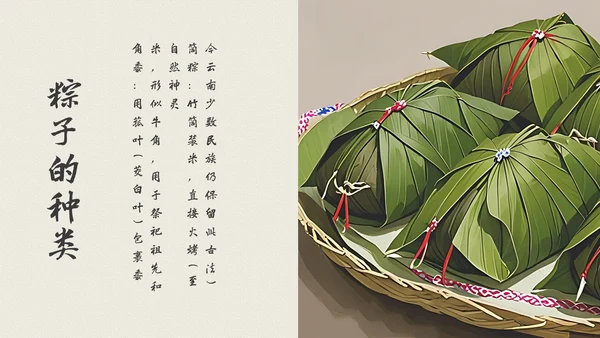 粽子的种类
角黍：用菰叶（茭白叶）包裹黍
米，形似牛角，用于祭祀祖先和
自然神灵
筒粽：竹筒装米，直接火烤（至
今云南少数民族仍保留此古法）